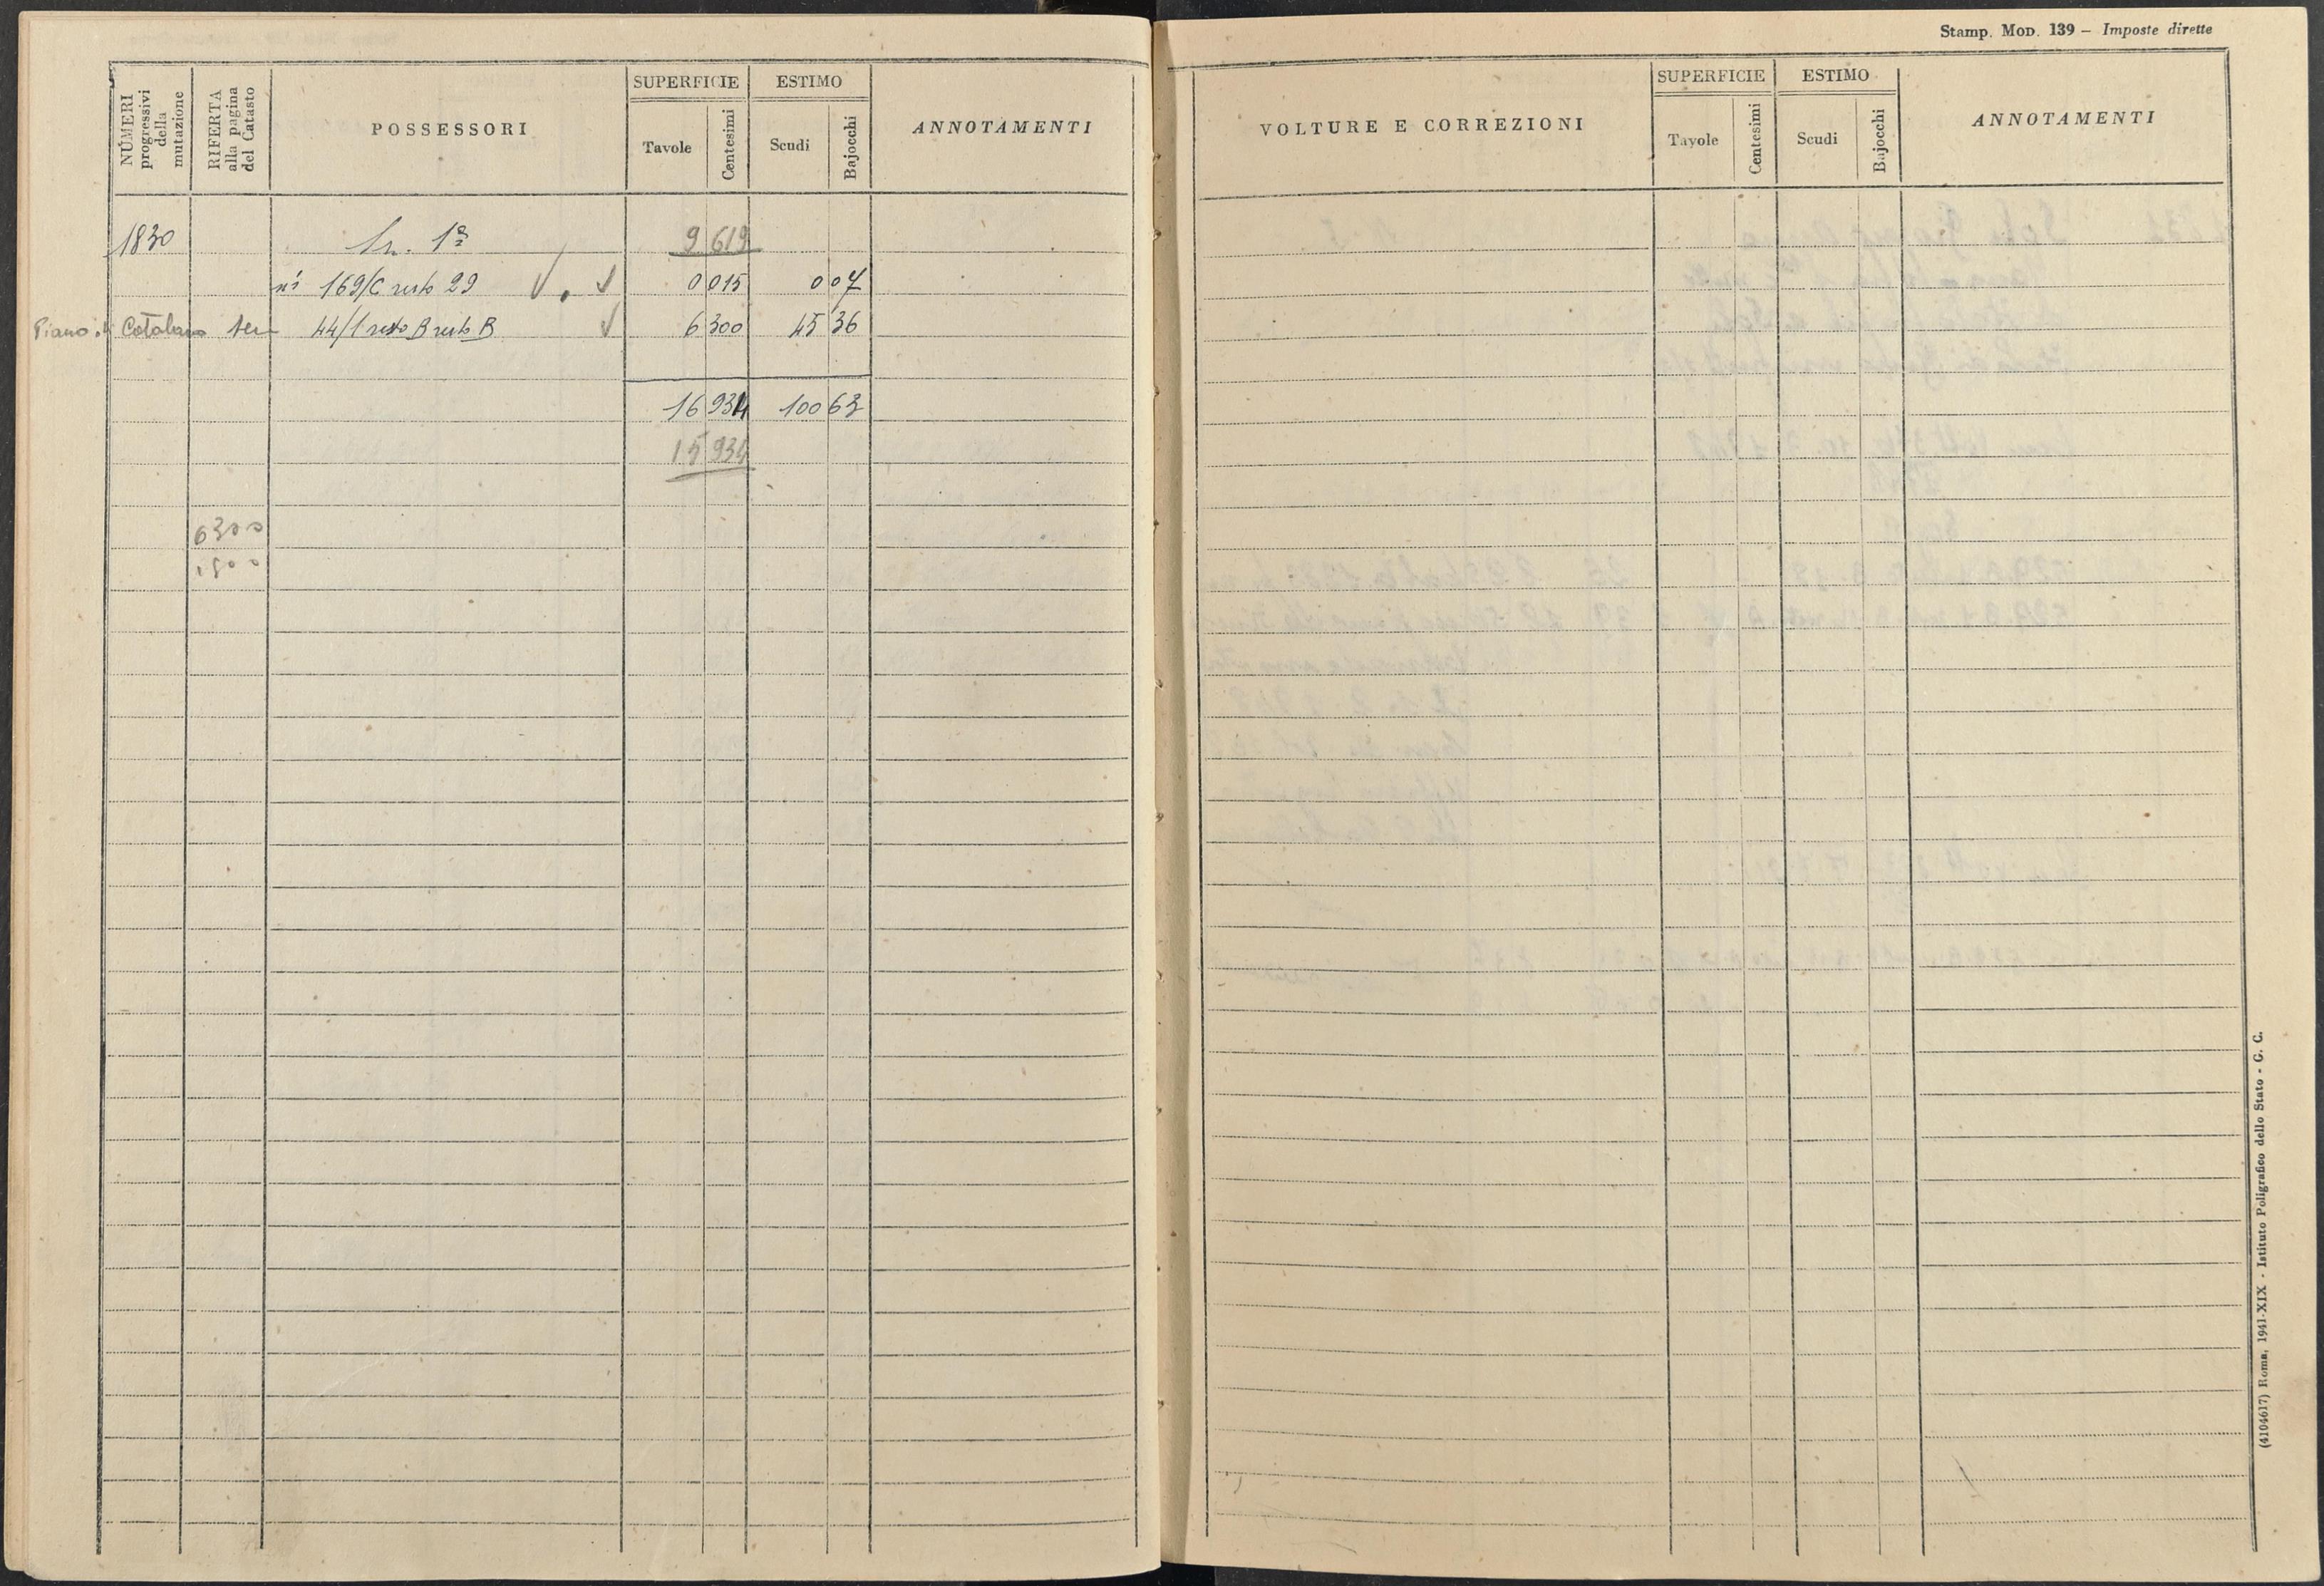 NÚMERI progressivi della mutazione
RIFERTA alla pagina del Catasto
POSSESSORI
SUPERFICIE
Tavole
Centesimi
ESTIMO
Scudi
Bajocchi
ANNOTAMENTI
1830 1ª 9 619
169/C resto 29 0 015 0 07
Piano 44/1 resto B resto B 6 300 45 36
16 934 100 63
15 934
6300
Stamp. MOD. 139 – Imposte dirette
VOLTURE E CORREZIONI
SUPERFICIE
Tavole
Centesimi
ESTIMO
Scudi
Bajocchi
ANNOTAMENTI
(4104617) Roma, 1941-XIX - Istituto Poligrafico dello Stato - G. C.